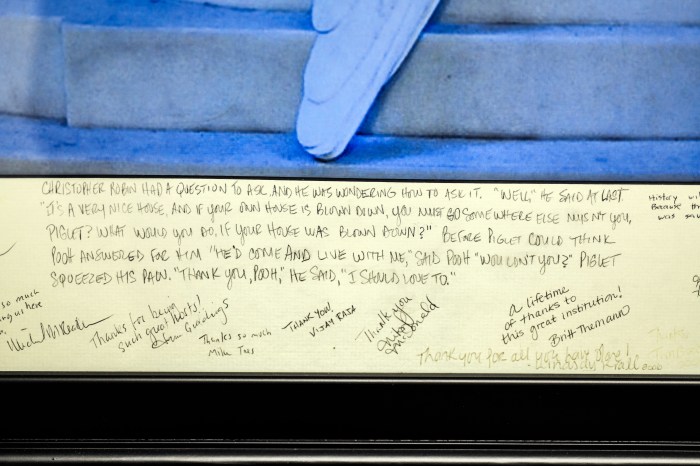 CHRISTOPHER ROBIN HAD A QUESTION TO ASK AND HE WAS WONDERING HOW TO ASK IT. "WELL," HE SAID AT LAST
"IT'S A VERY NICE HOUSE, AND IF YOUR OWN HOUSE IS BLOWN DOWN, YOU MUST GO SOMEWHERE ELSE MUSN'T YOU,
PIGLET? WHAT WOULD YOU DO, IF YOUR HOUSE WAS BLOWN DOWN?" BEFORE PIGLET COULD THINK
POOH ANSWERED FOR HIM "HE'D COME AND LIVE WITH ME," SAID POOH "WOULDN'T YOU?" PIGLET
SQUEEZED HIS PAW. "THANK YOU, POOH," HE SAID, "I SHOULD LOVE TO."
History
Because
was
so much
us here
Thanks for being
such great hosts!
Thanks so much
THANK YOU!
VIJAY RAJA
Thank you
McDonald
a lifetime
of thanks to
this great institution!
Thank you for all you have done!